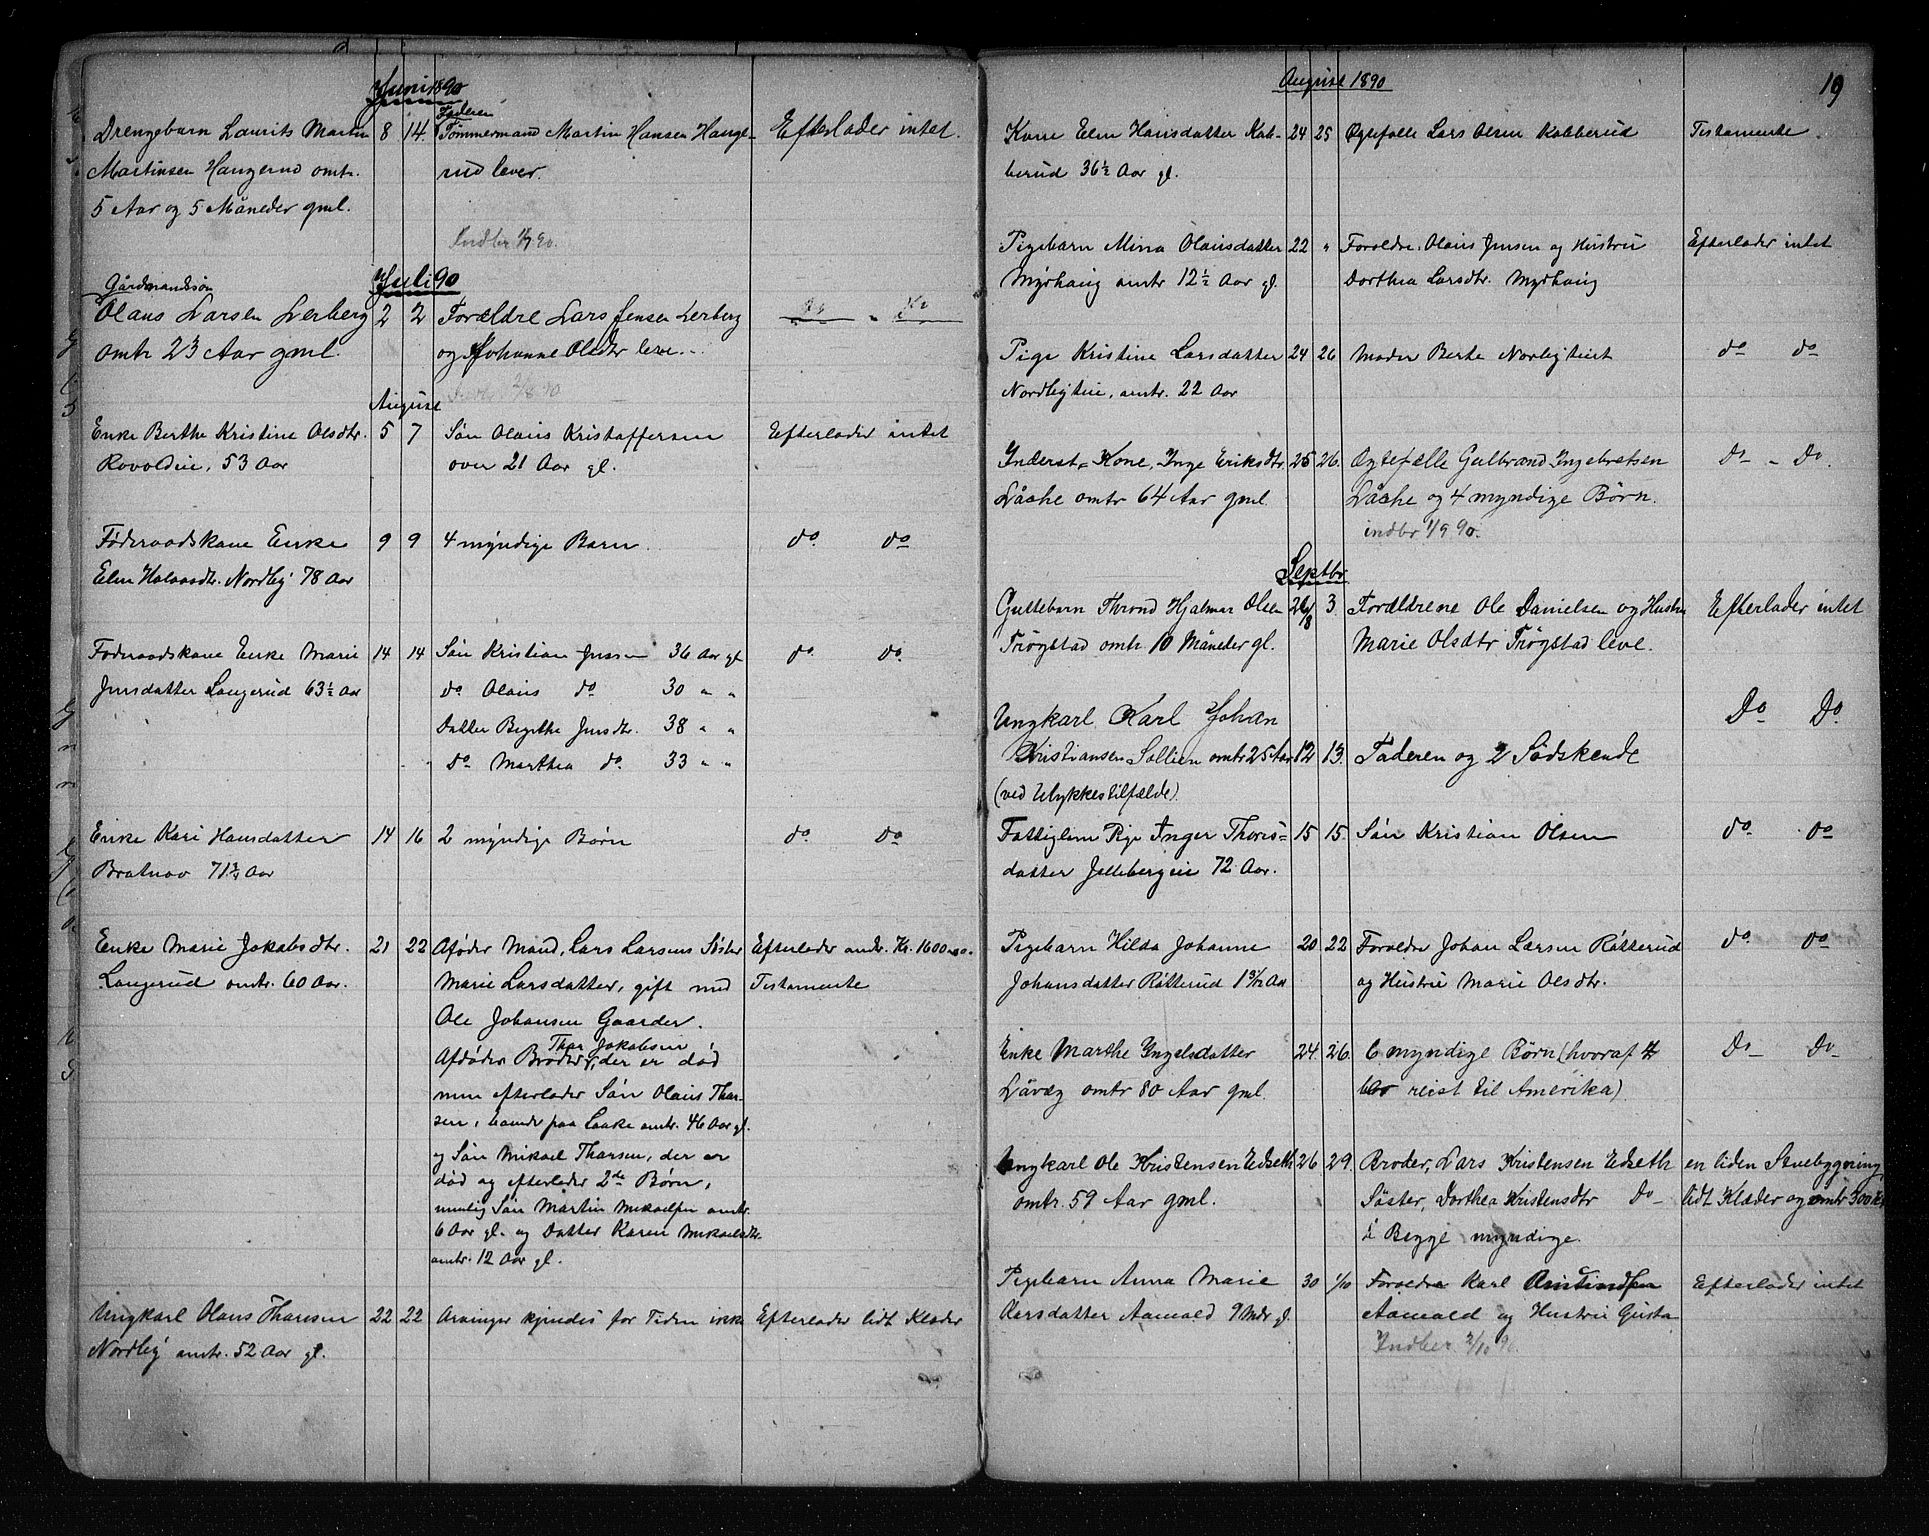 Juni 1890
Drengebarn Laurits Martin 8 14. Faderen Tømmermand Martin Hansen Hauge- Efterlader intet.
Martinsen Haugerud omtr. rud lever.
5 Aar og 5 Måneder gml.
Indbr 1/7 90.
Juli 90
Gårdmandssøn
Olaus Larsen Lerberg 2 2 Forældre Lars Jensen Lerberg do - do
omtr 23 Aar gml. og Johanne Olsdtr leve.
2/8 90
August
Enke Berthe Kristine Olsdtr. 5 7 Søn Olaus Kristoffersen Efterlader intet
53 Aar over 21 Aar gl.
Føderaadskone Enke 9 9 4 myndige Børn. do. do
Elen Halvorsdtr. Nordby 78 Aar
Føderaadskone Enke Marie 14 14 Søn Kristian Jensen 36 Aar gl do. do.
Jensdatter Langerud 63½ Aar do Olaus do 30 " "
Datter Birgithe Jensdtr. 38 " "
do Marthea do. 33 " "
Enke Kari Hansdatter 14 16 2 myndige Børn do. do
Bratnov 71¾ Aar
Enke Marie Jakobsdtr. 21 22 Afdøde Mand, Lars Larsens Søster Efterlader omtr. Kr. 1600.00.
Langerud omtr. 60 Aar. Marie Larsdatter, gift med Testamente
Ole Johansen Gaarder.
Thor Jakobsen
Afdødes Broder, der er død
men efterlader Søn Olaus Thor-
sen, boende paa Laake omtr. 46 Aar gl.
og Søn Mikael Thorsen, der er
død og efterlader 2de Børn,
nemlig Søn Martin Mikaelsen omtr.
6 Aar gl. og Datter Karen Mikaelsdtr.
omtr. 12 Aar gl.
Ungkarl Olaus Thoresen 22 22 Arvinger kjendes for Tiden ikke Efterlader lidt Klæder
Nordby omtr. 52 Aar gl.
August 1890
19
Kone Elen Hansdatter Kob- 24 25 Ægtefælle Lars Olsen Kobberud Testamente.
berud 36½ Aar gl.
Pigebarn Mina Olausdatter 22 " Forældre. Olaus Jensen og Hustru Efterlader intet
Myrhaug omtr 12½ Aar gl. Dorthea Larsdtr. Myrhaug
Pige Kristine Larsdatter 24 26 Moder Berte Nordbyeiet do do
Nordbyeie, omtr. 22 Aar
Inderst-Kone, Inge Eriksdtr. 25 26. Ægtefælle Gulbrand Ingebretsen Do - Do.
Låche omtr 64 Aar gml. Låche og 4 myndige Børn.
indbr 1/9 90.
Septbr.
Guttebarn Thrond Hjalmar Olsen 26/8 3. Forældrene Ole Danielsen og Hustru Efterlader intet
Trøgstad omtr. 10 Måneder gl. Marie Olsdtr Trøgstad leve.
Ungkarl Karl Johan Do Do
Kristiansen Sollien omtr 25 Aar 12 13. Faderen og 2 Södskende
(ved Ulykkestilfælde)
Fattiglem Pige Inger Thores- 15 15. Søn Kristian Olsen do. do
datter 72 Aar.
Pigebarn Hilda Johanne 20 22 Forældre Johan Larsen Råtterud do. do
Johansdatter Råtterud 1 9/12 Aar og Hustru Marie Olsdtr.
Enke Marthe Ingelsdatter 24. 26. 6 myndige Børn (hvoraf 4 Do - Do
Låvæg omtr 80 Aar gml. reist til Amerika).
Ungkarl Ole Kristensen Eidseth 26 29. Broder, Lars Kristensen Eidseth en liden Stuebygning,
omtr. 59 Aar gml. Søster, Dorthea Kristensdtr Do - lidt Klæder og omtr 300 Kr
Begge myndige.
Pigebarn Anna Marie 30 1/10 Forældre Karl Efterlader intet
Karsdatter Aamold 9 Mdr gl. Aamold og Hustru Gusta
Indber 2/10 90.